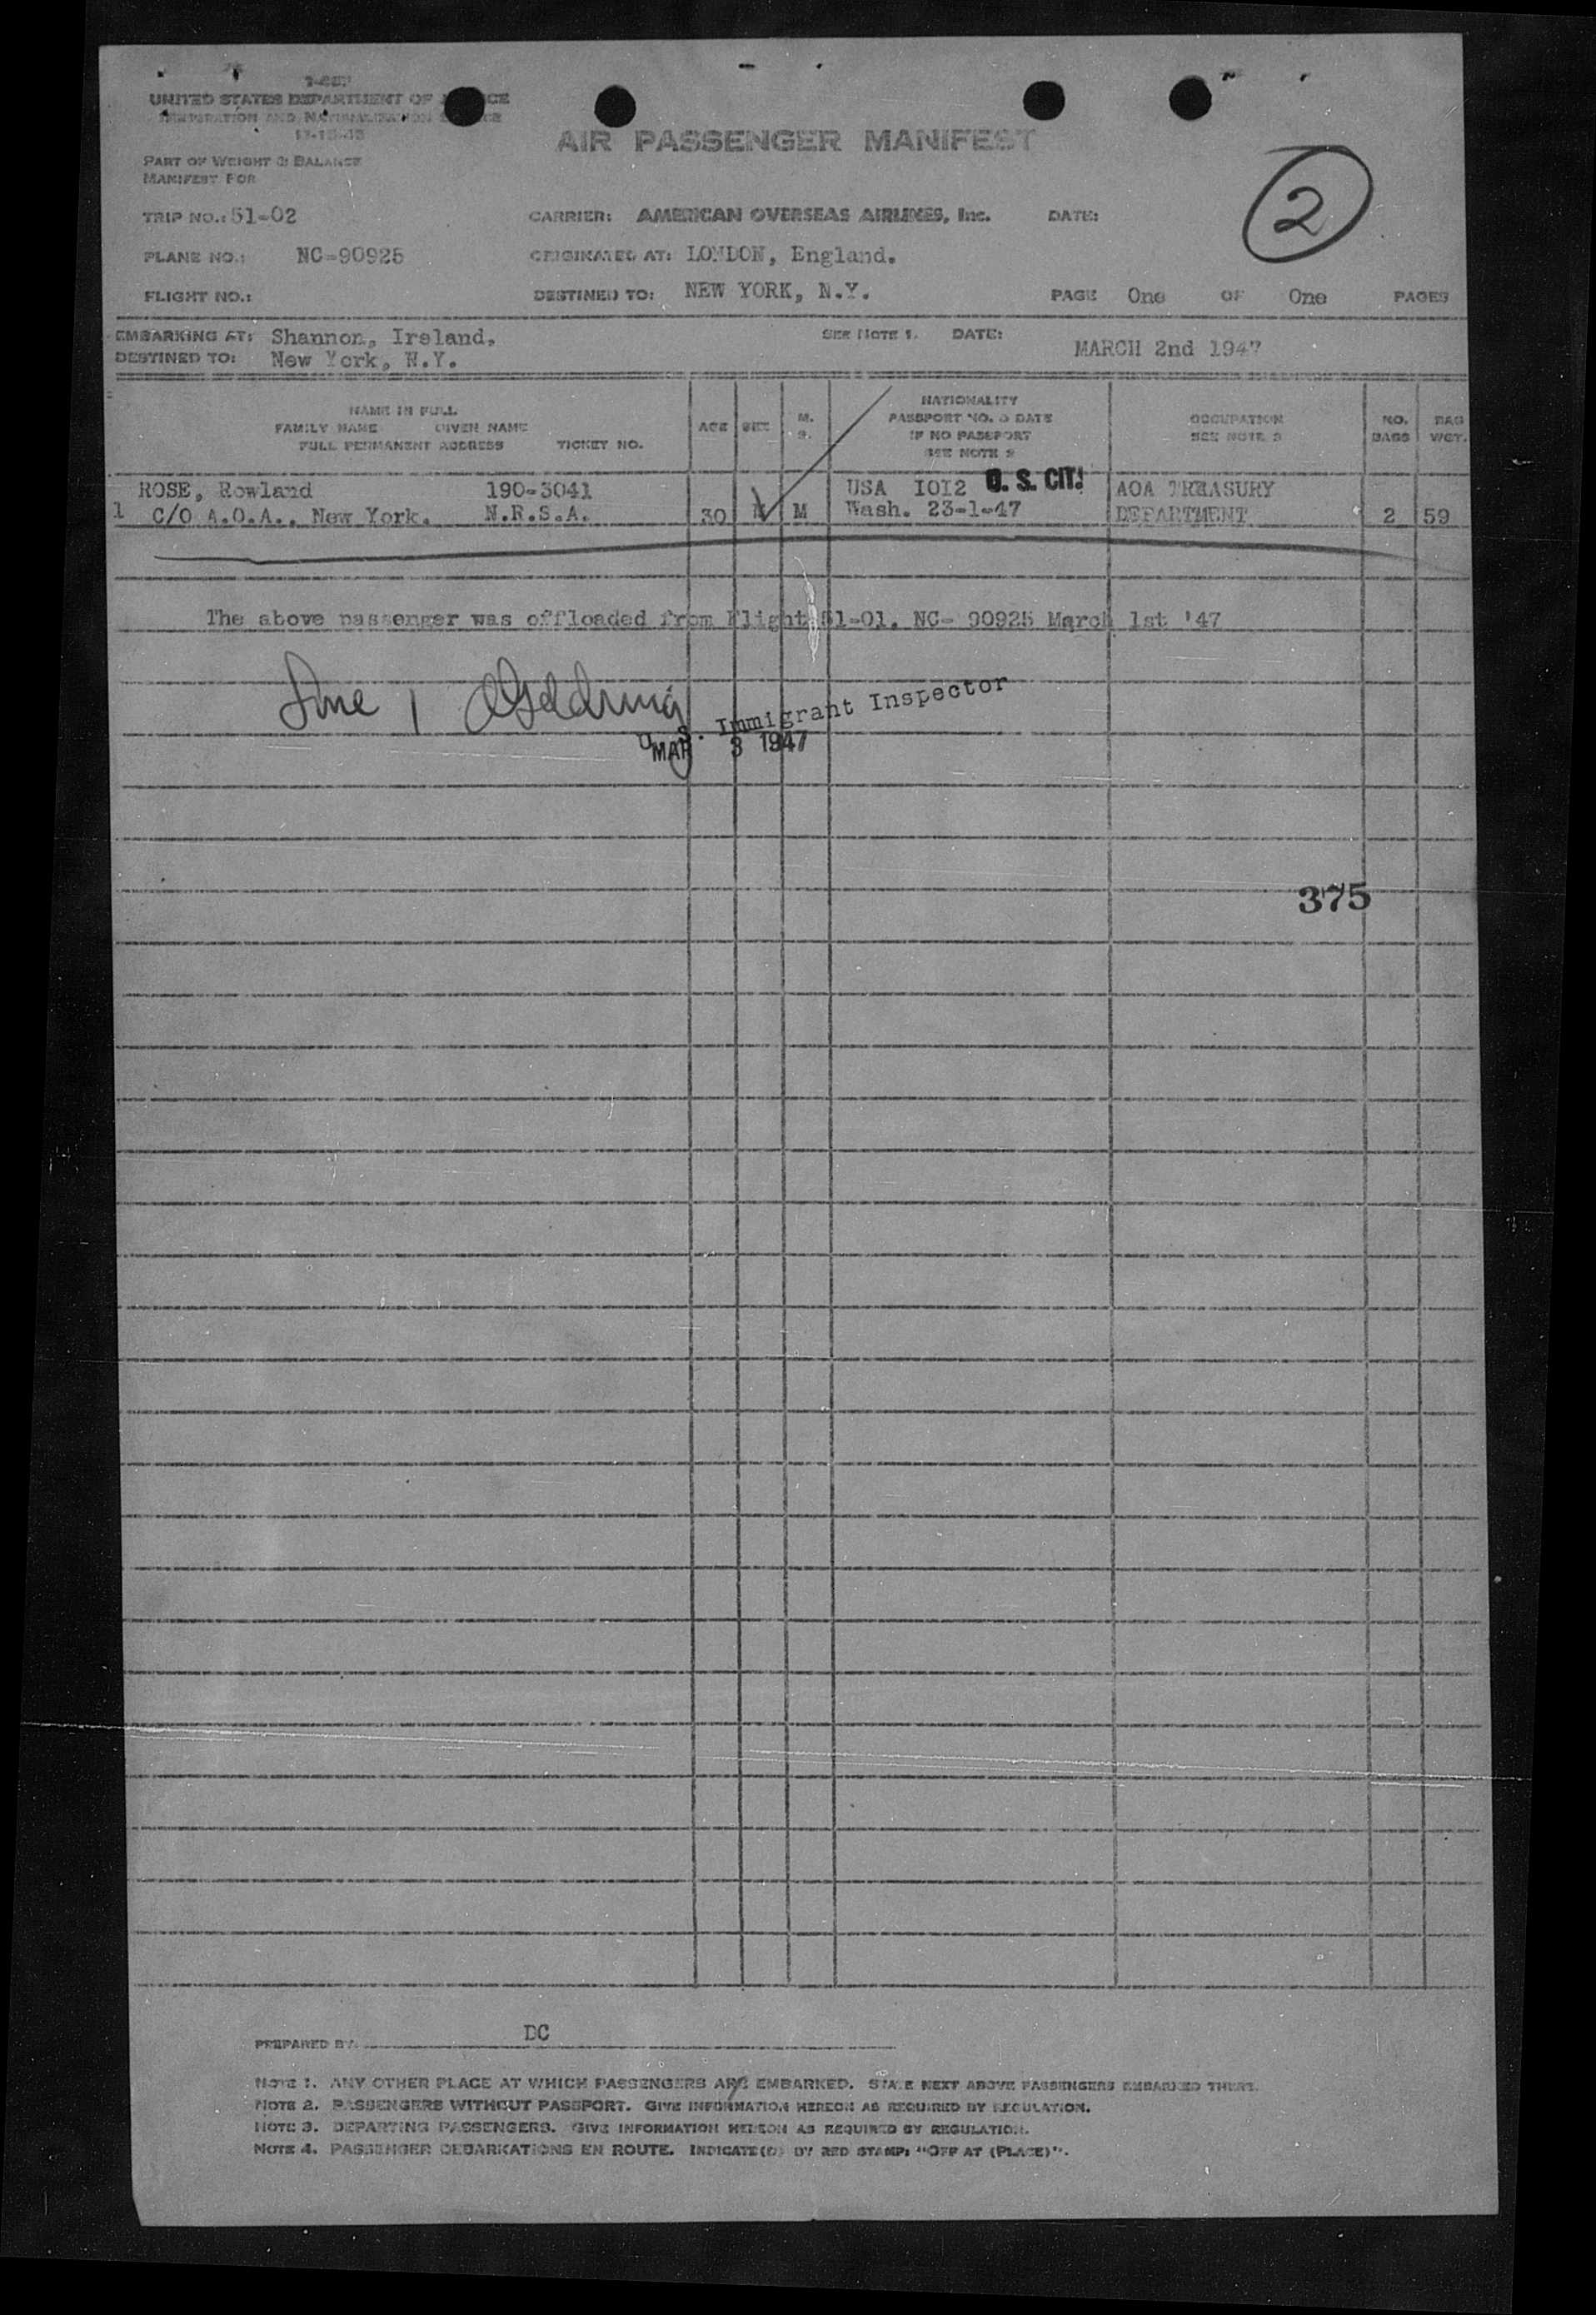 UNITED STATES DEPARTMENT OF
IMMIGRATION AND NATURALIZATION
AIR PASSENGER MANIFEST
PART OF WEIGHT & BALANCE
MANIFEST FOR
2
TRIP NO.: 51-02 CARRIER: AMERICAN OVERSEAS AIRLINES, Inc. DATE:
PLANE NO.: NC-90925 ORIGINATED AT: LONDON, England.
FLIGHT NO.: DESTINED TO: NEW YORK, N.Y. PAGE One OF One PAGES
EMBARKING AT: Shannon, Ireland. SEE NOTE 1. DATE: MARCH 2nd 1947
DESTINED TO: New York, N.Y.
NAME IN FULL
FAMILY NAME GIVEN NAME
FULL PERMANENT ADDRESS TICKET NO.
AGE SEX M. S.
NATIONALITY
PASSPORT NO. & DATE
IF NO PASSPORT
SEE NOTE 2
OCCUPATION
SEE NOTE 3
NO. BAGS
BAG WGT.
ROSE, Rowland 190-3041 USA 1012 U. S. CIT. AOA TREASURY
1 C/O A.O.A., New York. N.R.S.A. 30 M Wash. 23-1-47 DEPARTMENT 2 59
The above passenger was offloaded from Flight 51-01. NC- 90925 March 1st '47
Line 1
U. S. Immigrant Inspector
MAR 3 1947
375
PREPARED BY DC
NOTE 1. ANY OTHER PLACE AT WHICH PASSENGERS ARE EMBARKED. STATE NEXT ABOVE PASSENGERS EMBARKED THERE.
NOTE 2. PASSENGERS WITHOUT PASSPORT. GIVE INFORMATION HEREON AS REQUIRED BY REGULATION.
NOTE 3. DEPARTING PASSENGERS. GIVE INFORMATION HEREON AS REQUIRED BY REGULATION.
NOTE 4. PASSENGER DEBARKATIONS EN ROUTE. INDICATE(D) BY RED STAMP: "OFF AT (PLACE)".